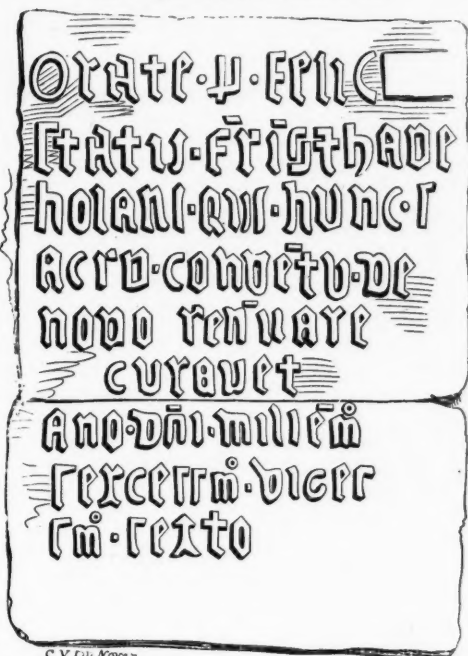 Orate · ꝑ · felic
ſtatu · fr̄is thade
holani · qui · hunc · ſ
acrū · convētū · de
novo ren̄uare
curauet
Ano · dn̄i · millēm̊
ſexceſſm̊ · viceſ
ſm̊ · ſexto
G. V. Du Noyer